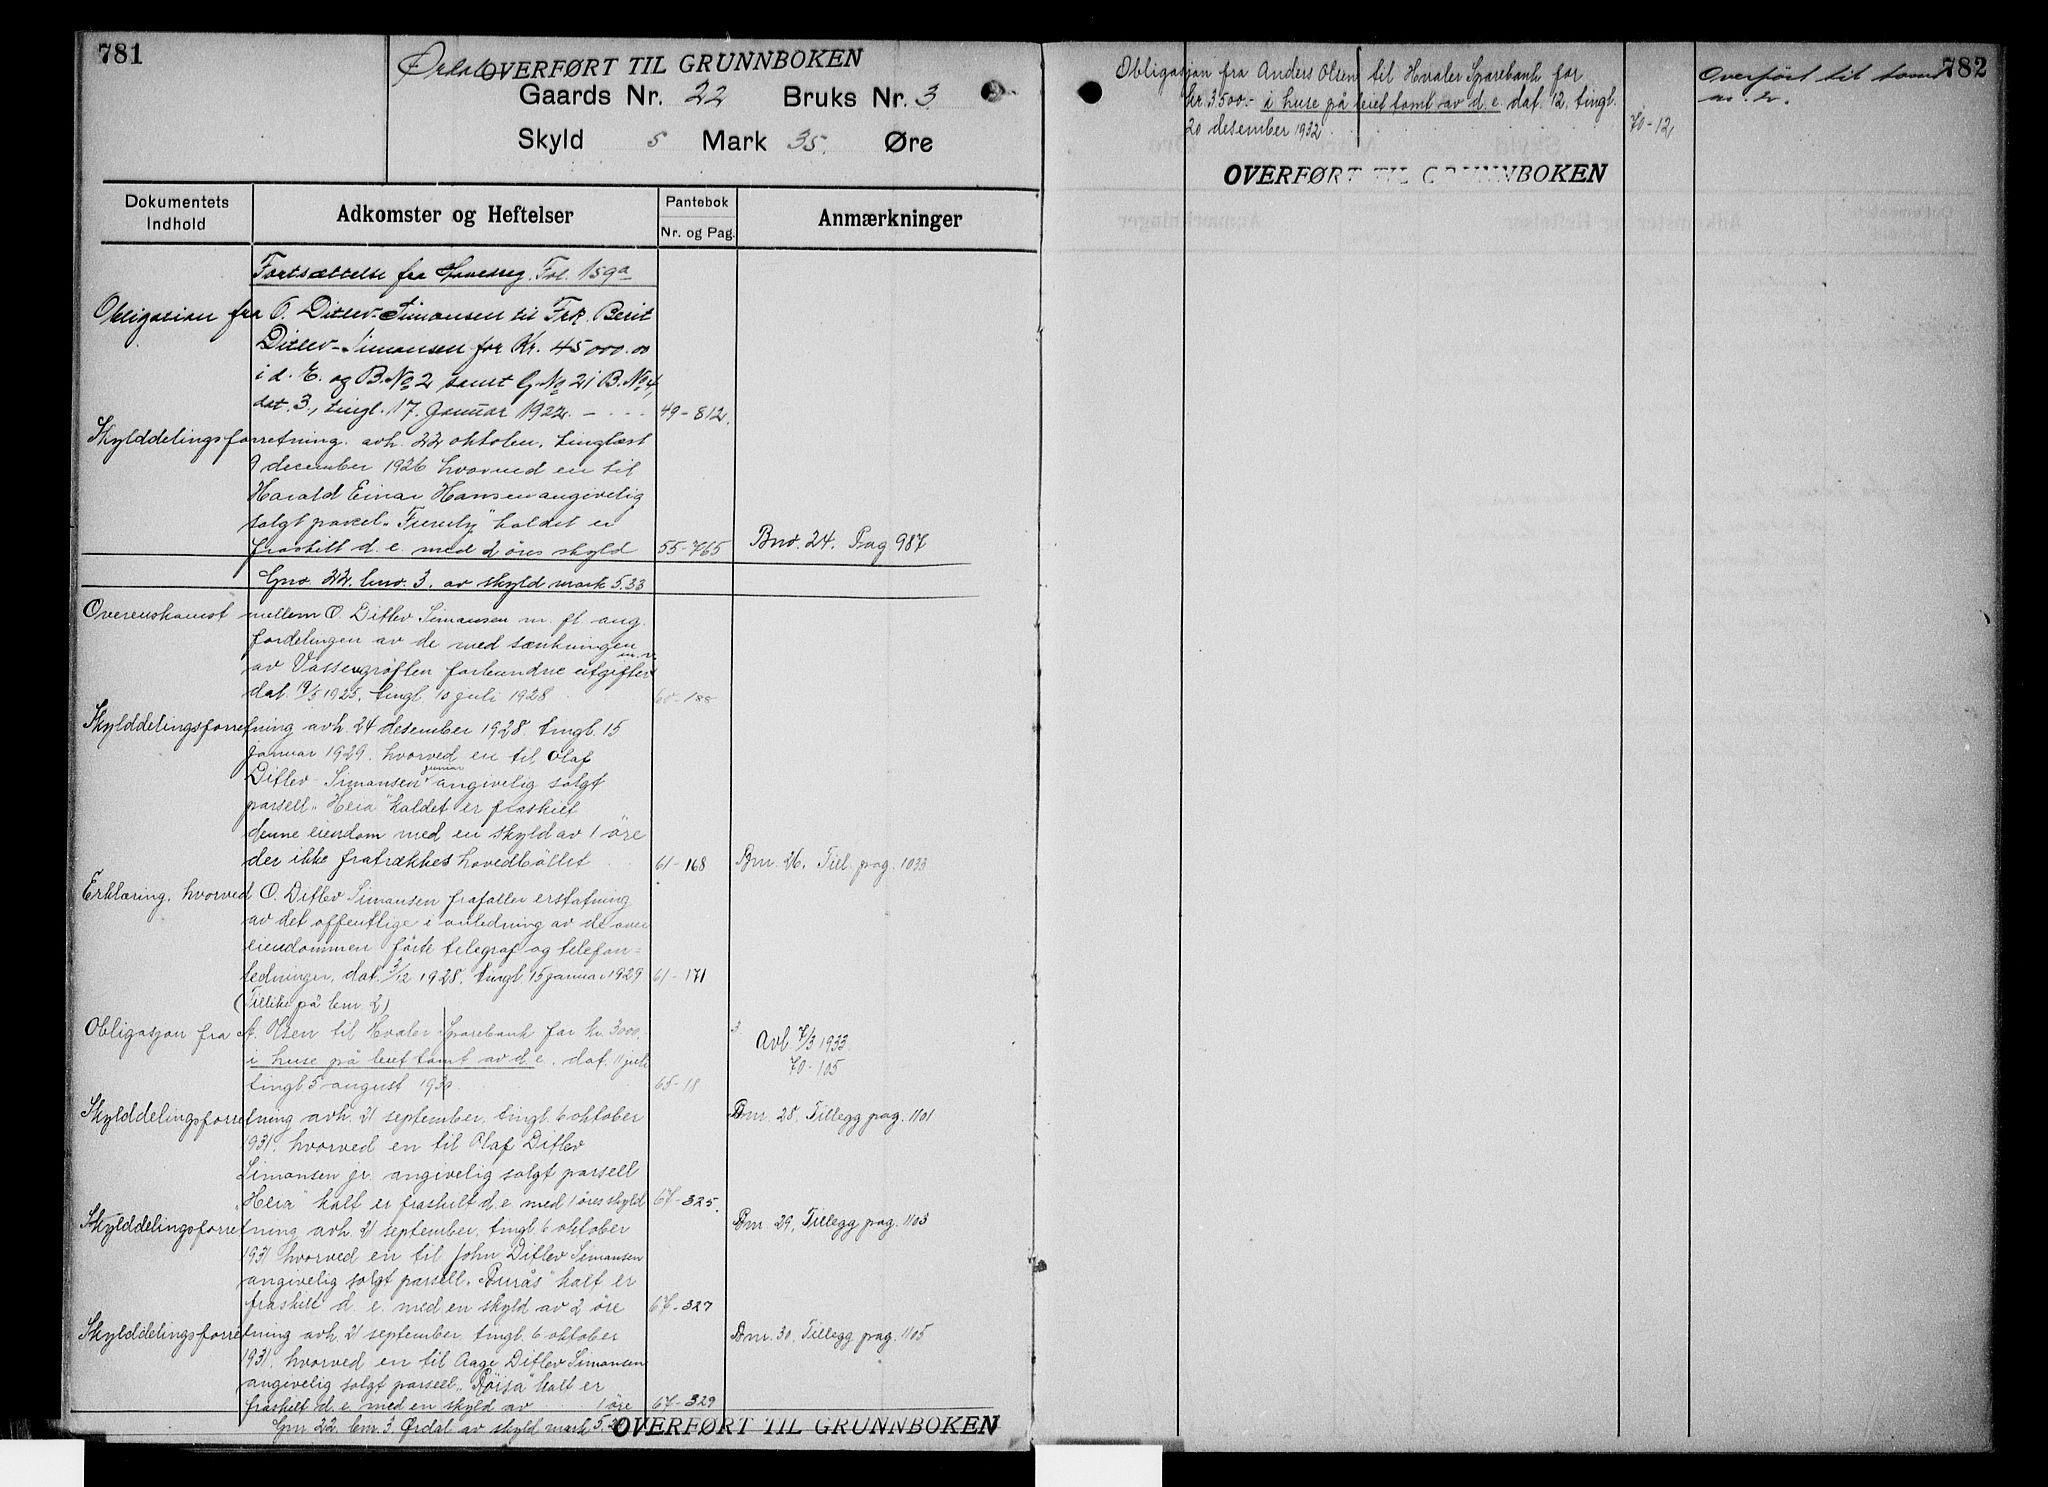 781
Ørdal OVERFØRT TIL GRUNNBOKEN
Gaards Nr. 22 Bruks Nr. 3
Skyld 5 Mark 35. Øre
Dokumentets Indhold
Adkomster og Heftelser
Pantebok
Nr. og Pag.
Anmærkninger
Fortsættelse fra Hovedreg. Fol. 159a
Obligasion fra O. Ditlev-Simonsen til Frk. Berit
Ditlev-Simonsen for Kr. 45000.00
i d. E. og B.No 2 samt G.No 21 B.No 4,
dat. 3., tingl. 17. Januar 1922. - 49-812.
Skylddelingsforretning. avh. 22 oktober, tinglæst
9 december 1926 hvorved en til
Harald Einar Hansen angivelig
solgt parcel "Furuly" kaldet er
fraskilt d. e. med 2 øres skyld 55-765 Bno. 24. Pag 987
Gno. 22. bno. 3. av skyld mark 5.33
Overenskomst mellem O. Ditlev Simonsen m. fl ang.
fordelingen av de med sænkningen
av Vassengrøften forbundne utgifter m.v.
dat 19/5 1925, tingl. 10 juli 1928 60-188
Skylddelingsforretning avh. 24 desember 1928 tingl. 15
januar 1929. hvorved en til Olaf
Ditlev Simonsen junior angivelig solgt
parsell "Heia" kaldet er fraskilt
denne eiendom med en skyld av 1 øre
der ikke fratrækkes hovedbøllet 61-168 Bnr. 26. Till. pag. 1033
Erklæring, hvorved O. Ditlev Simonsen frafaller erstatning
av det offentlige i anledning av de over
eiendommen førte telegraf og telefon=
ledninger, dat. 3/12 1928. tingl. 15 januar 1929 61-171
(Tillike på bnr. 2)
Obligasjon fra A. Olsen til Hvaler Sparebank for kr. 3000.-
i huse på leiet tomt av d. e. dat. 11 juli
tingl. 5 august 1930 65-18
Avl 7/3 1933
70-105
Skylddelingsforretning avh. 21 september, tingl. 6 oktober
1931. hvorved en til Olaf Ditlev
Simonsen jr. angivelig solgt parsell
"Heia" kalt er fraskilt d. e. med 1 øres skyld 67-325.
Bnr. 28, Tillegg pag. 1101
Skylddelingsforretning avh. 21 september, tingl. 6 oktober
1931 hvorved en til John Ditlev Simonsen
angivelig solgt parsell. "Burås" kalt er
fraskilt d. e. med en skyld av 2 øre 67-327
Bnr. 29, Tillegg pag. 1103
Skylddelingsforretning avh. 21 september, tingl. 6 oktober
1931. hvorved en til Aage Ditlev Simonsen
angivelig solgt parsell "Røisa" kalt er
fraskilt d. e. med en skyld av 1 øre 67-329
Bnr. 30. Tillegg pag. 1105
Gnr 22 bnr. 3 Ørdal av skyld mark 5.
OVERFØRT TIL GRUNNBOKEN
782
Obligasjon fra Anders Olsen til Hvaler Sparebank for
kr. 3500.- i huse på leiet tomt av d. e. dat. 12, tingl.
20 desember 1932 70-12
Overført til tomt
OVERFØRT TIL GRUNNBOKEN